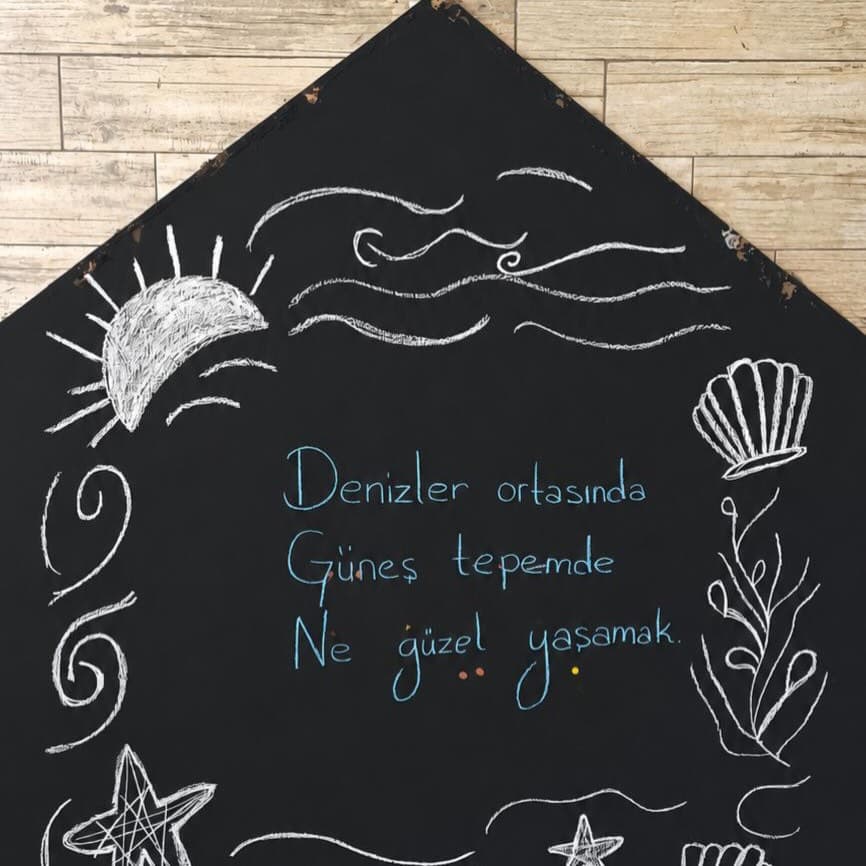 Denizler ortasında
Güneş tepemde
Ne güzel yaşamak.